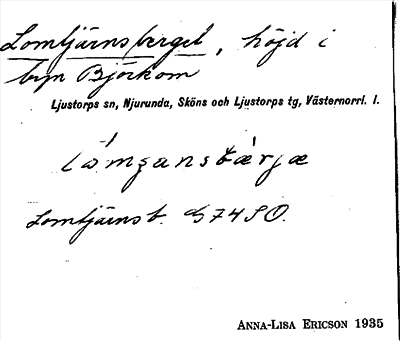 Lomtjärnsberget, höjd i
byn Björkom
Ljustorps sn, Njurunda, Sköns och Ljustorps tg, Västernorrl. l.
Lomtjärnsb. G74SO.
ANNA-LISA ERICSON 1935